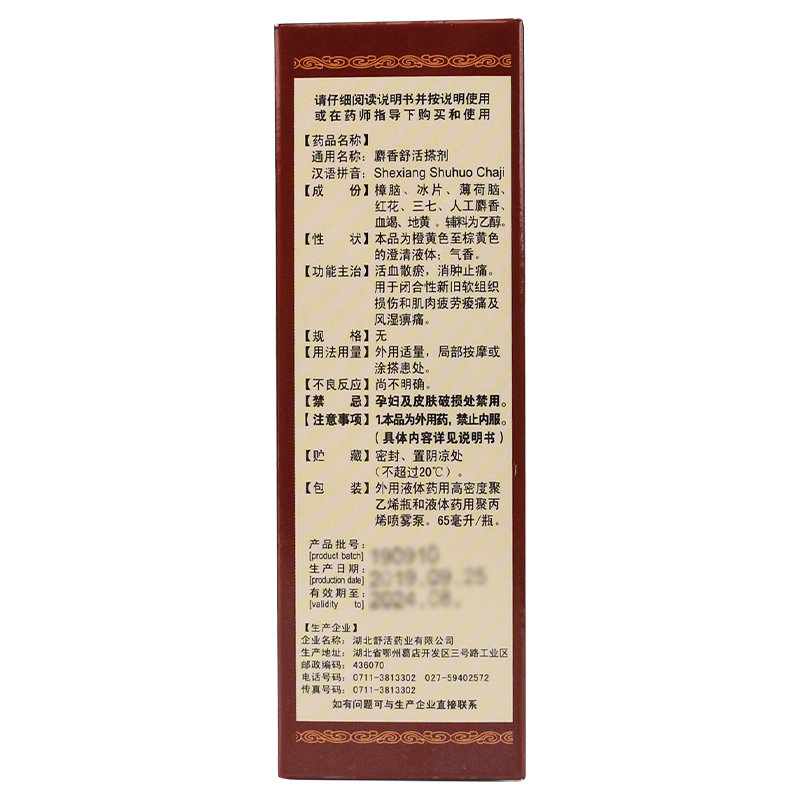 请仔细阅读说明书并按说明使用
或在药师指导下购买和使用
【药品名称】
通用名称：麝香舒活搽剂
汉语拼音：Shexiang Shuhuo Chaji
【成 份】樟脑、冰片、薄荷脑、
红花、三七、人工麝香、
血竭、地黄。辅料为乙醇。
【性 状】本品为橙黄色至棕黄色
的澄清液体；气香。
【功能主治】活血散瘀，消肿止痛。
用于闭合性新旧软组织
损伤和肌肉疲劳痠痛及
风湿痹痛。
【规 格】无
【用法用量】外用适量，局部按摩或
涂搽患处。
【不良反应】尚不明确。
【禁 忌】孕妇及皮肤破损处禁用。
【注意事项】1.本品为外用药，禁止内服。
（具体内容详见说明书）
【贮 藏】密封、置阴凉处
（不超过20℃）。
【包 装】外用液体药用高密度聚
乙烯瓶和液体药用聚丙
烯喷雾泵。65毫升/瓶。
产品批号： 190910
[product batch]
生产日期： 2019.09.25
[production date]
有效期至： 2024.08.
[validity to]
【生产企业】
企业名称：湖北舒活药业有限公司
生产地址：湖北省鄂州葛店开发区三号路工业区
邮政编码：436070
电话号码：0711-3813302 027-59402572
传真号码：0711-3813302
如有问题可与生产企业直接联系